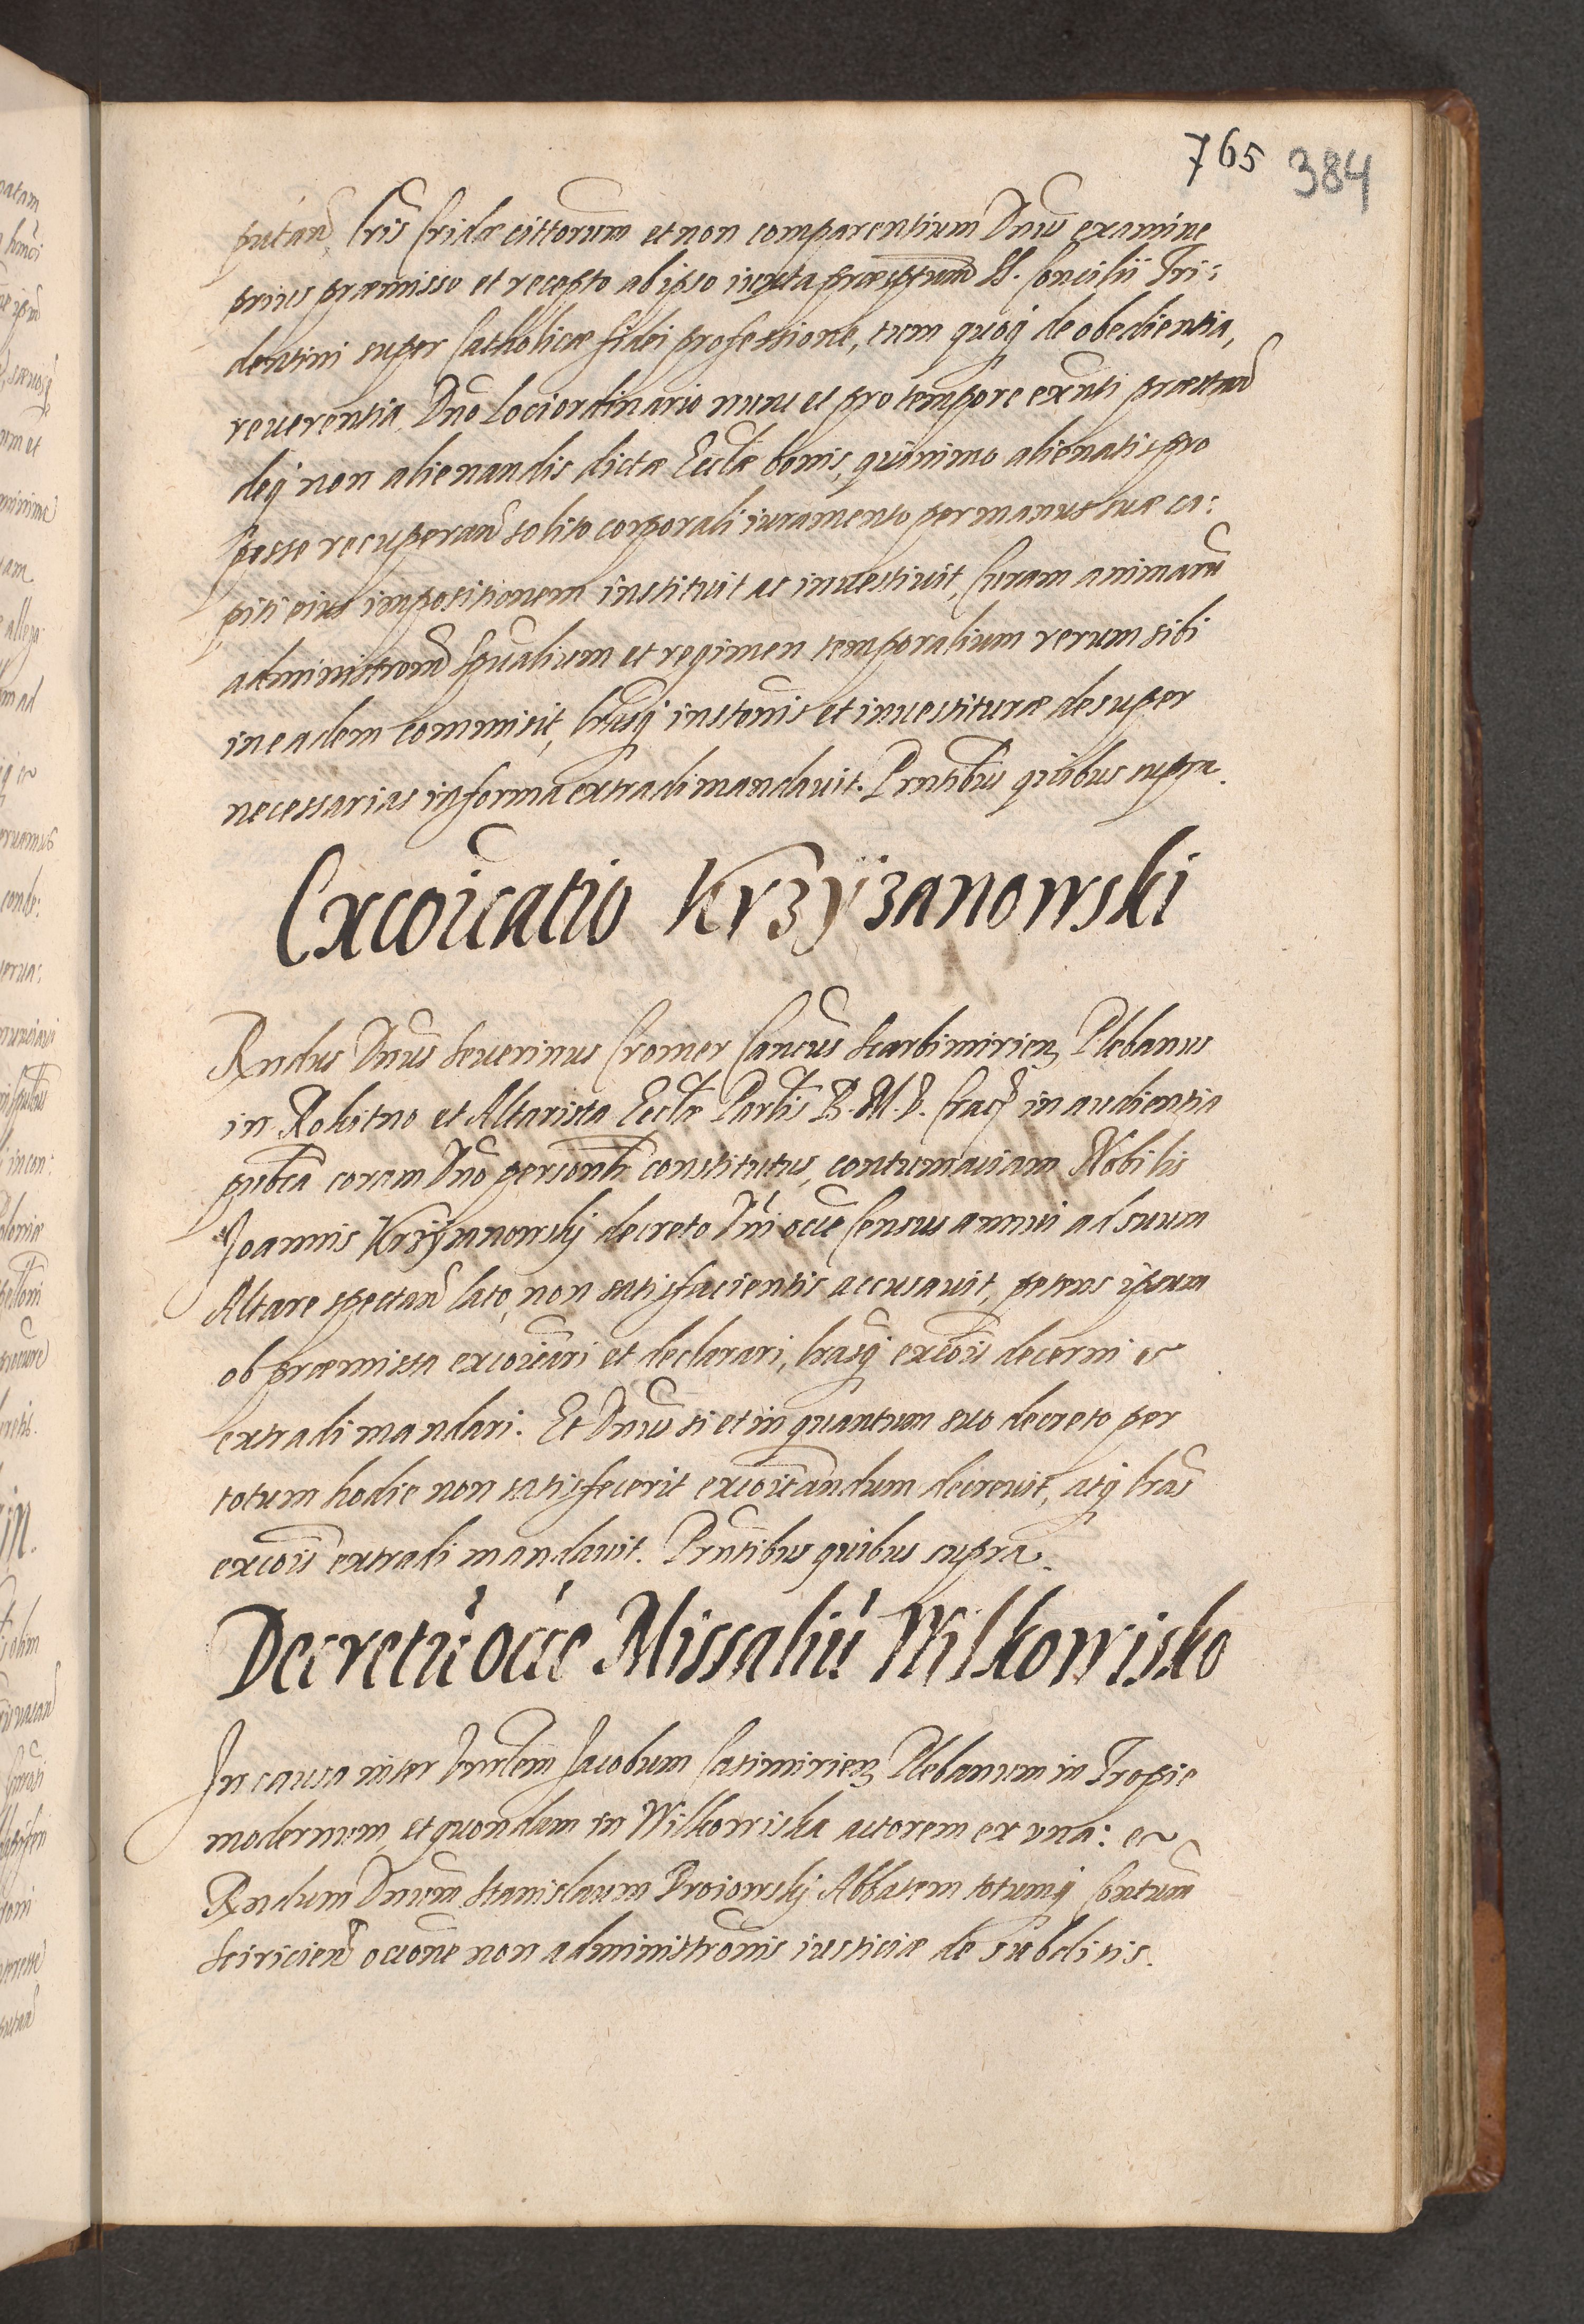 765 384
putan̄ l̄ris Cridæ cittorum et non comparentium Dnus examine
prius præmisso et recepto ab ipso iuxta præscriptum SS. Concilii Tri:
dentini super Catholicæ fidei professione, tum quoq de obedientia,
reuerentia Dno Loci ordinario nunc et pro tempore exnti præstan̄
deq non alienandis dictæ Ecclæ bonis, quinimo alienatis pro
posse recuperan̄ solito corporali iuramento per manus suæ ca:
piti eius impositionem instituit ac inuestiuit, Curam animarū
administrom̄ spūalium et regimen temporalium rerum sibi
in eadem commisit, lrasq instōnis et inuestituræ desuper
necessarias in forma extradi mandauit. Prntibus quibus supra.
Excōicatio Krzÿzanowski
Rndus Dnus Seuerinus Cromer Cancus Scarbimirien̄ Plebanus
in Rokitno et Altarista Ecclæ Parlis B. M. V. Crac̄ in audientia
publca coram Dno personlr constitutus, contumaciam Nobilis
Joannis Krzÿzanowskÿ decreto Dni occe Census annui ad suum
Altare spectan̄ lato, non satisfacientis accusauit, petens ipsum
ob præmissa excōicari et declarari, lrasq excōis decerni et
extradi mandari. Et Dnus si et in quantum suo decreto per
totum hodie non satisfecerit excōicandum decreuit, atq lras
excōis extradi mandauit. Prntibus quibus supra.
Decretū occe Missaliū Wilkowisko
In causa inter Dnrlem Jacobum Casimirien̄ Plebanum in Tropie
modernum, et quondam in Wilkowiska actorem ex vna: et
Rndum Dnum Stanislaum Proiowskÿ Abbatem totumq Contum̄
Sciricien̄ occone non administrōnis iusticiæ de subditis.